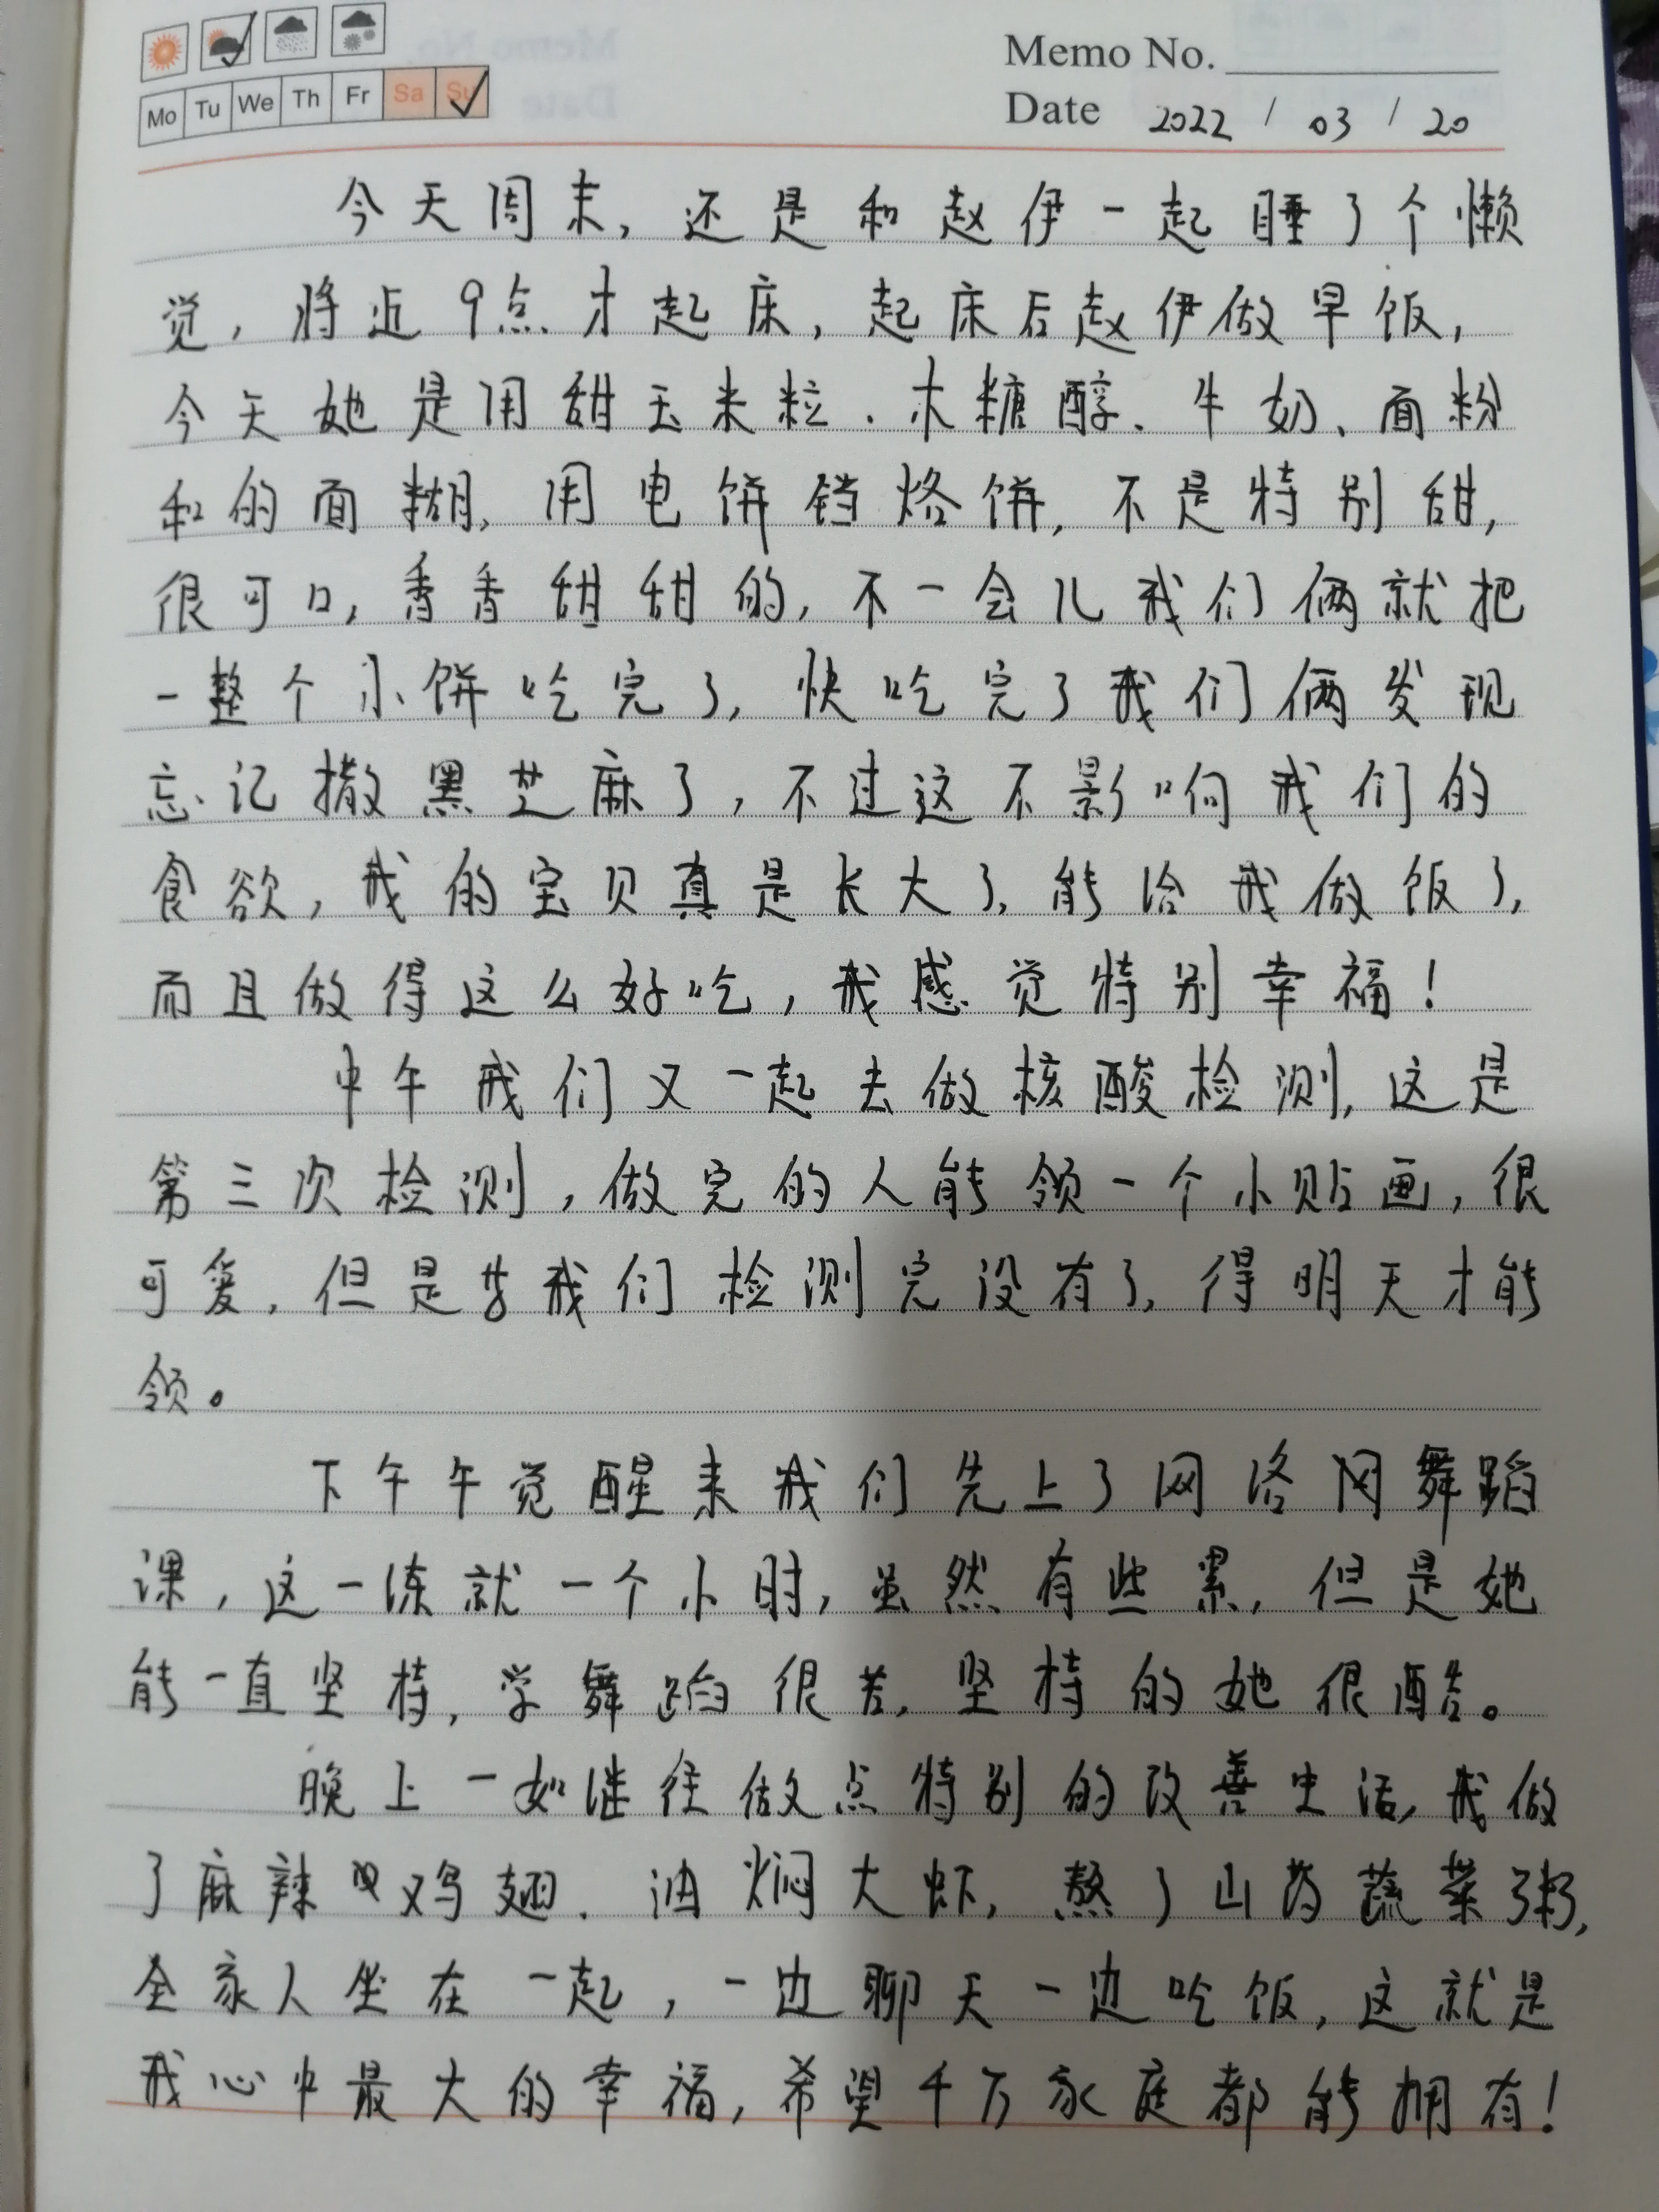 Memo No.
Mo Tu We Th Fr Sa Su
Date 2022 / 03 / 20
今天周末,还是和赵伊一起睡了个懒
觉,将近9点才起床,起床后赵伊做早饭,
今天她是用甜玉米粒、木糖醇、牛奶、面粉
和的面糊,用电饼铛烙饼,不是特别甜,
很可口,香香甜甜的,不一会儿我们俩就把
一整个小饼吃完了,快吃完了我们俩发现
忘记撒黑芝麻了,不过这不影响我们的
食欲,我的宝贝真是长大了,能给我做饭了,
而且做得这么好吃,我感觉特别幸福!
中午我们又一起去做核酸检测,这是
第三次检测,做完的人能领一个小贴画,很
可爱,但是我们检测完没有了,得明天才能
领。
下午午觉醒来我们先上了网络网舞蹈
课,这一练就一个小时,虽然有些累,但是她
能一直坚持,学舞蹈很苦,坚持的她很酷。
晚上一如继往做点特别的改善生活,我做
了麻辣鸡翅、油焖大虾,熬了山药蔬菜粥,
全家人坐在一起,一边聊天一边吃饭,这就是
我心中最大的幸福,希望千万家庭都能拥有!